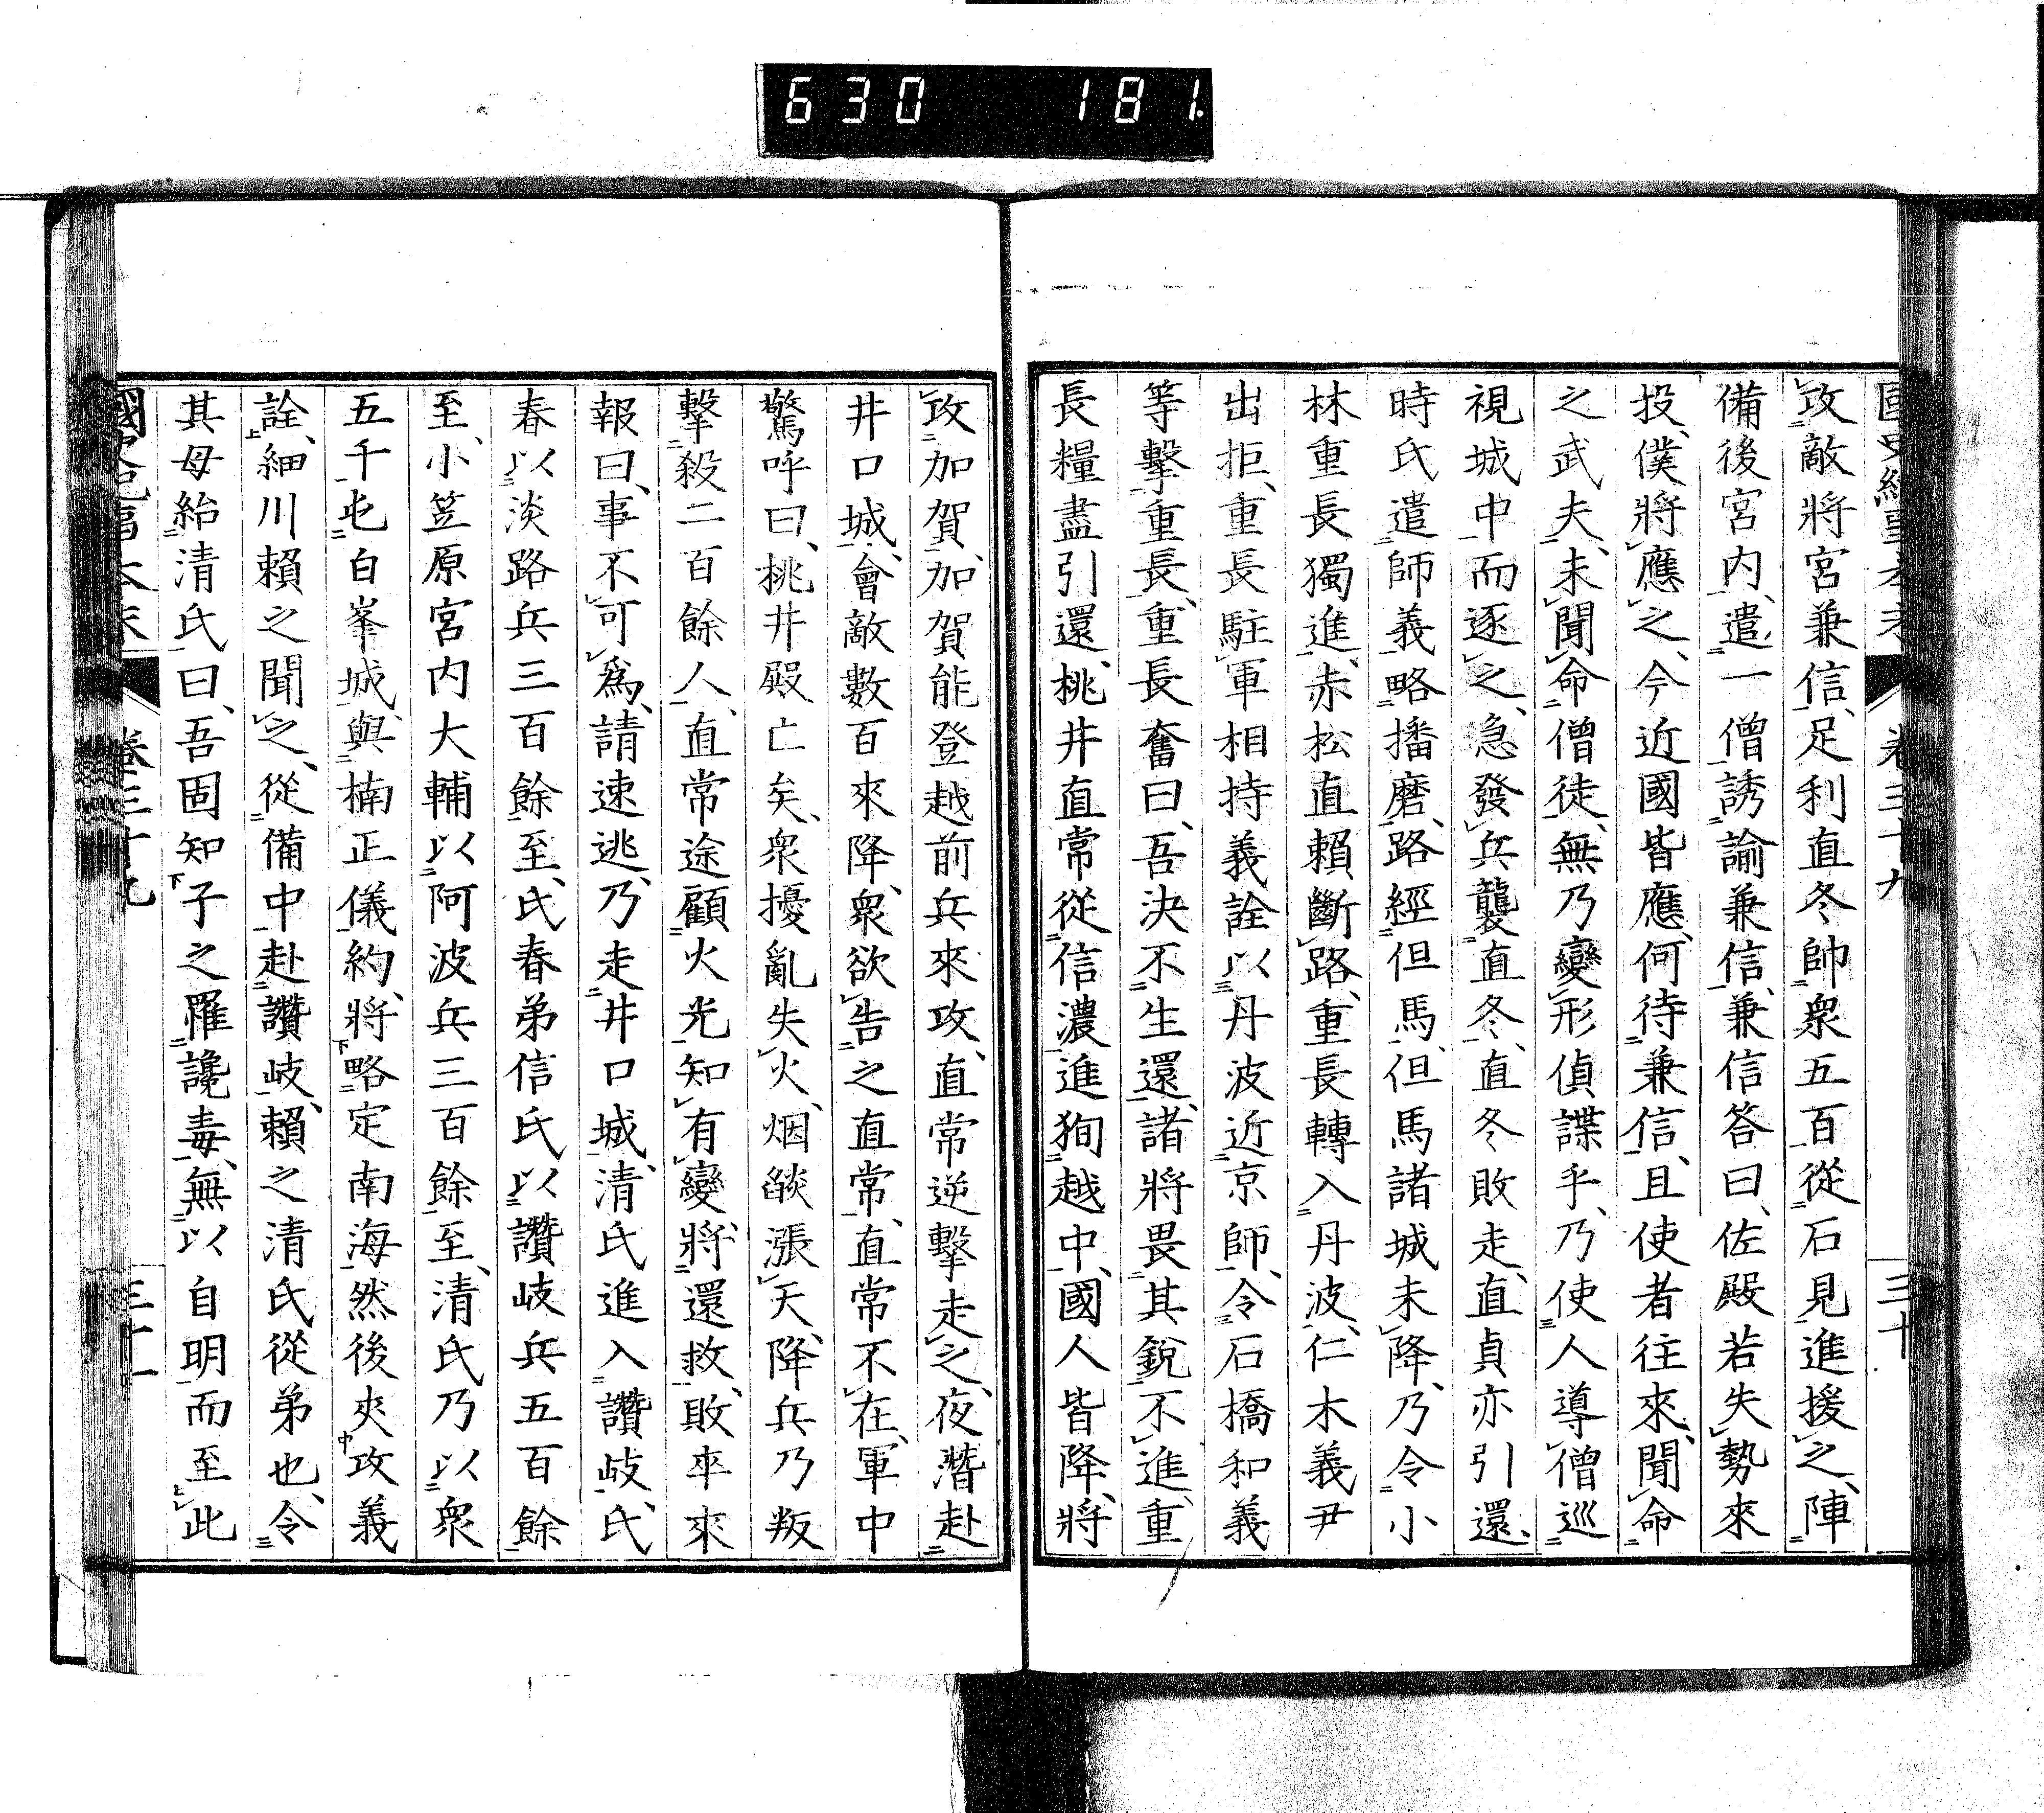 630 181
卷三十九
三十
攻敵將宮兼信、足利直冬帥衆五百從石見進援之、陣
備後宮内、遣一僧誘諭兼信、兼信答曰、佐殿若失勢來
投、僕將應之、今近國皆應、何待兼信、且使者往來、聞命
之武夫、未聞命僧徒、無乃變形偵諜乎、乃使人導僧巡
視城中而逐之、急發兵襲直冬、直冬敗走、直貞亦引還、
時氏遣師義略播磨、路經但馬、但馬諸城未降、乃令小
林重長獨進、赤松直賴斷路、重長轉入丹波、仁木義尹
出拒、重長駐軍相持義詮以丹波近京師、令石橋和義
等擊重長、重長奮曰、吾決不生還、諸將畏其銳不進、重
長糧盡引還、桃井直常從信濃進徇越中、國人皆降、將
攻加賀、加賀能登越前兵來攻、直常逆擊走之、夜潛赴
井口城、會敵數百來降、衆欲告之直常、直常不在、軍中
驚呼曰、桃井殿亡矣、衆擾亂失火、烟燄漲天、降兵乃叛
擊殺二百餘人、直常途顧火光知有變、將還救、敗卒來
報曰、事不可爲、請速逃、乃走井口城、清氏進入讚岐、氏
春以淡路兵三百餘至、氏春弟信氏以讚岐兵五百餘
至、小笠原宮内大輔以阿波兵三百餘至、清氏乃以衆
五千屯白峯城、與楠正儀約、將略定南海然後夾攻義
詮、細川賴之聞之、從備中赴讚岐、賴之清氏從弟也、令
其母紿清氏曰、吾固知子之罹讒毒、無以自明而至此
國史紀事本末
卷三十九
三十一